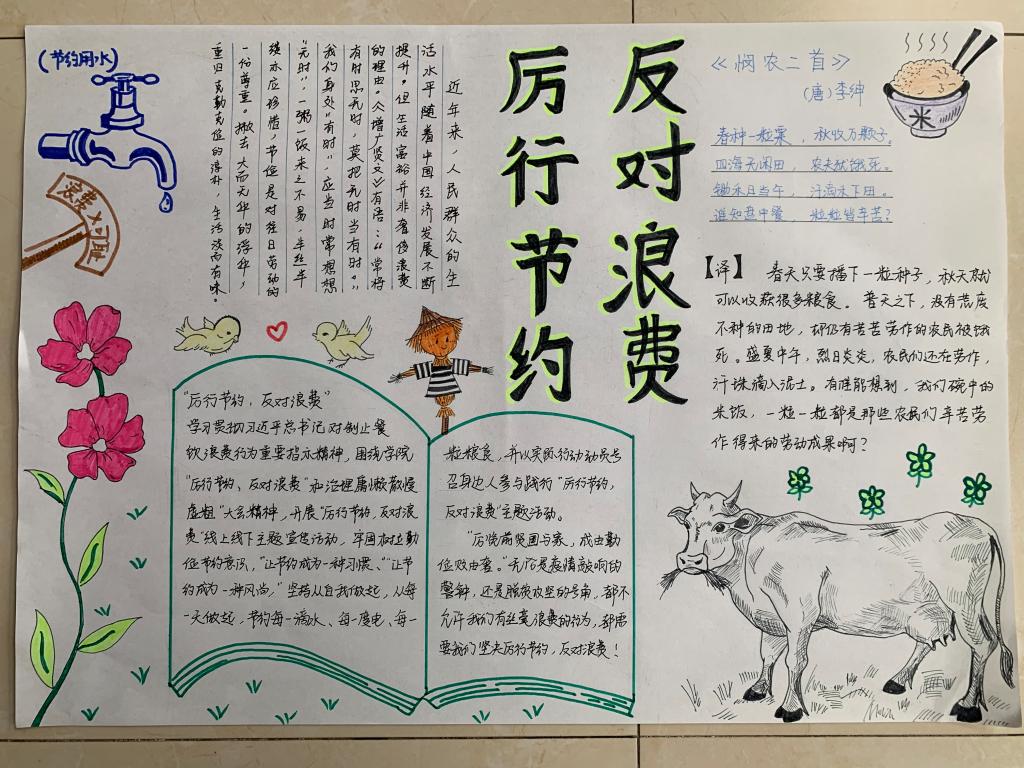 反对浪费
厉行节约
(节约用水)
浪费可耻
近年来，人民群众的生
活水平随着中国经济发展不断
提升。但生活富裕并非奢侈浪费
的理由。《增广贤文》有语：“常将
有时思无时，莫把无时当有时。”
我们身处“有时”，应当时常想想
“无时”，一粥一饭来之不易，半丝半
缕亦应珍惜，节俭是对往日劳动的
一份尊重。撇去大而无华的浮华，
重归克勤克俭的淳朴，生活淡而有味。
《悯农二首》
(唐)李绅
春种一粒粟，秋收万颗子。
四海无闲田，农夫犹饿死。
锄禾日当午，汗滴禾下田。
谁知盘中餐，粒粒皆辛苦？
【译】春天只要播下一粒种子，秋天就
可以收获很多粮食。普天之下，没有荒废
不种的田地，却仍有苦苦劳作的农民被饿
死。盛夏中午，烈日炎炎，农民们还在劳作，
汗珠滴入泥土。有谁能想到，我们碗中的
米饭，一粒一粒都是那些农民们辛苦劳
作得来的劳动成果啊？
米
“厉行节约，反对浪费”
学习贯彻习近平总书记对制止餐
饮浪费行为重要指示精神，围绕学院
“厉行节约、反对浪费”和治理庸懒散慢
虚粗“大会精神，开展“厉行节约，反对浪
费”线上线下主题宣传活动，牢固树立勤
俭节约意识，“让节约成为一种习惯、”“让节
约成为一种风尚，”坚持从自我做起，从每
一天做起，节约每一滴水、每一度电、每一
粒粮食，并以实际行动动员与
召身边人参与践行“厉行节约，
反对浪费”主题活动。
“历览前贤国与家，成由勤
俭败由奢。”无论是疫情敲响的
警钟，还是脱贫攻坚的号角，都不
允许我们有丝毫浪费的行为，都需
要我们坚决厉行节约，反对浪费！